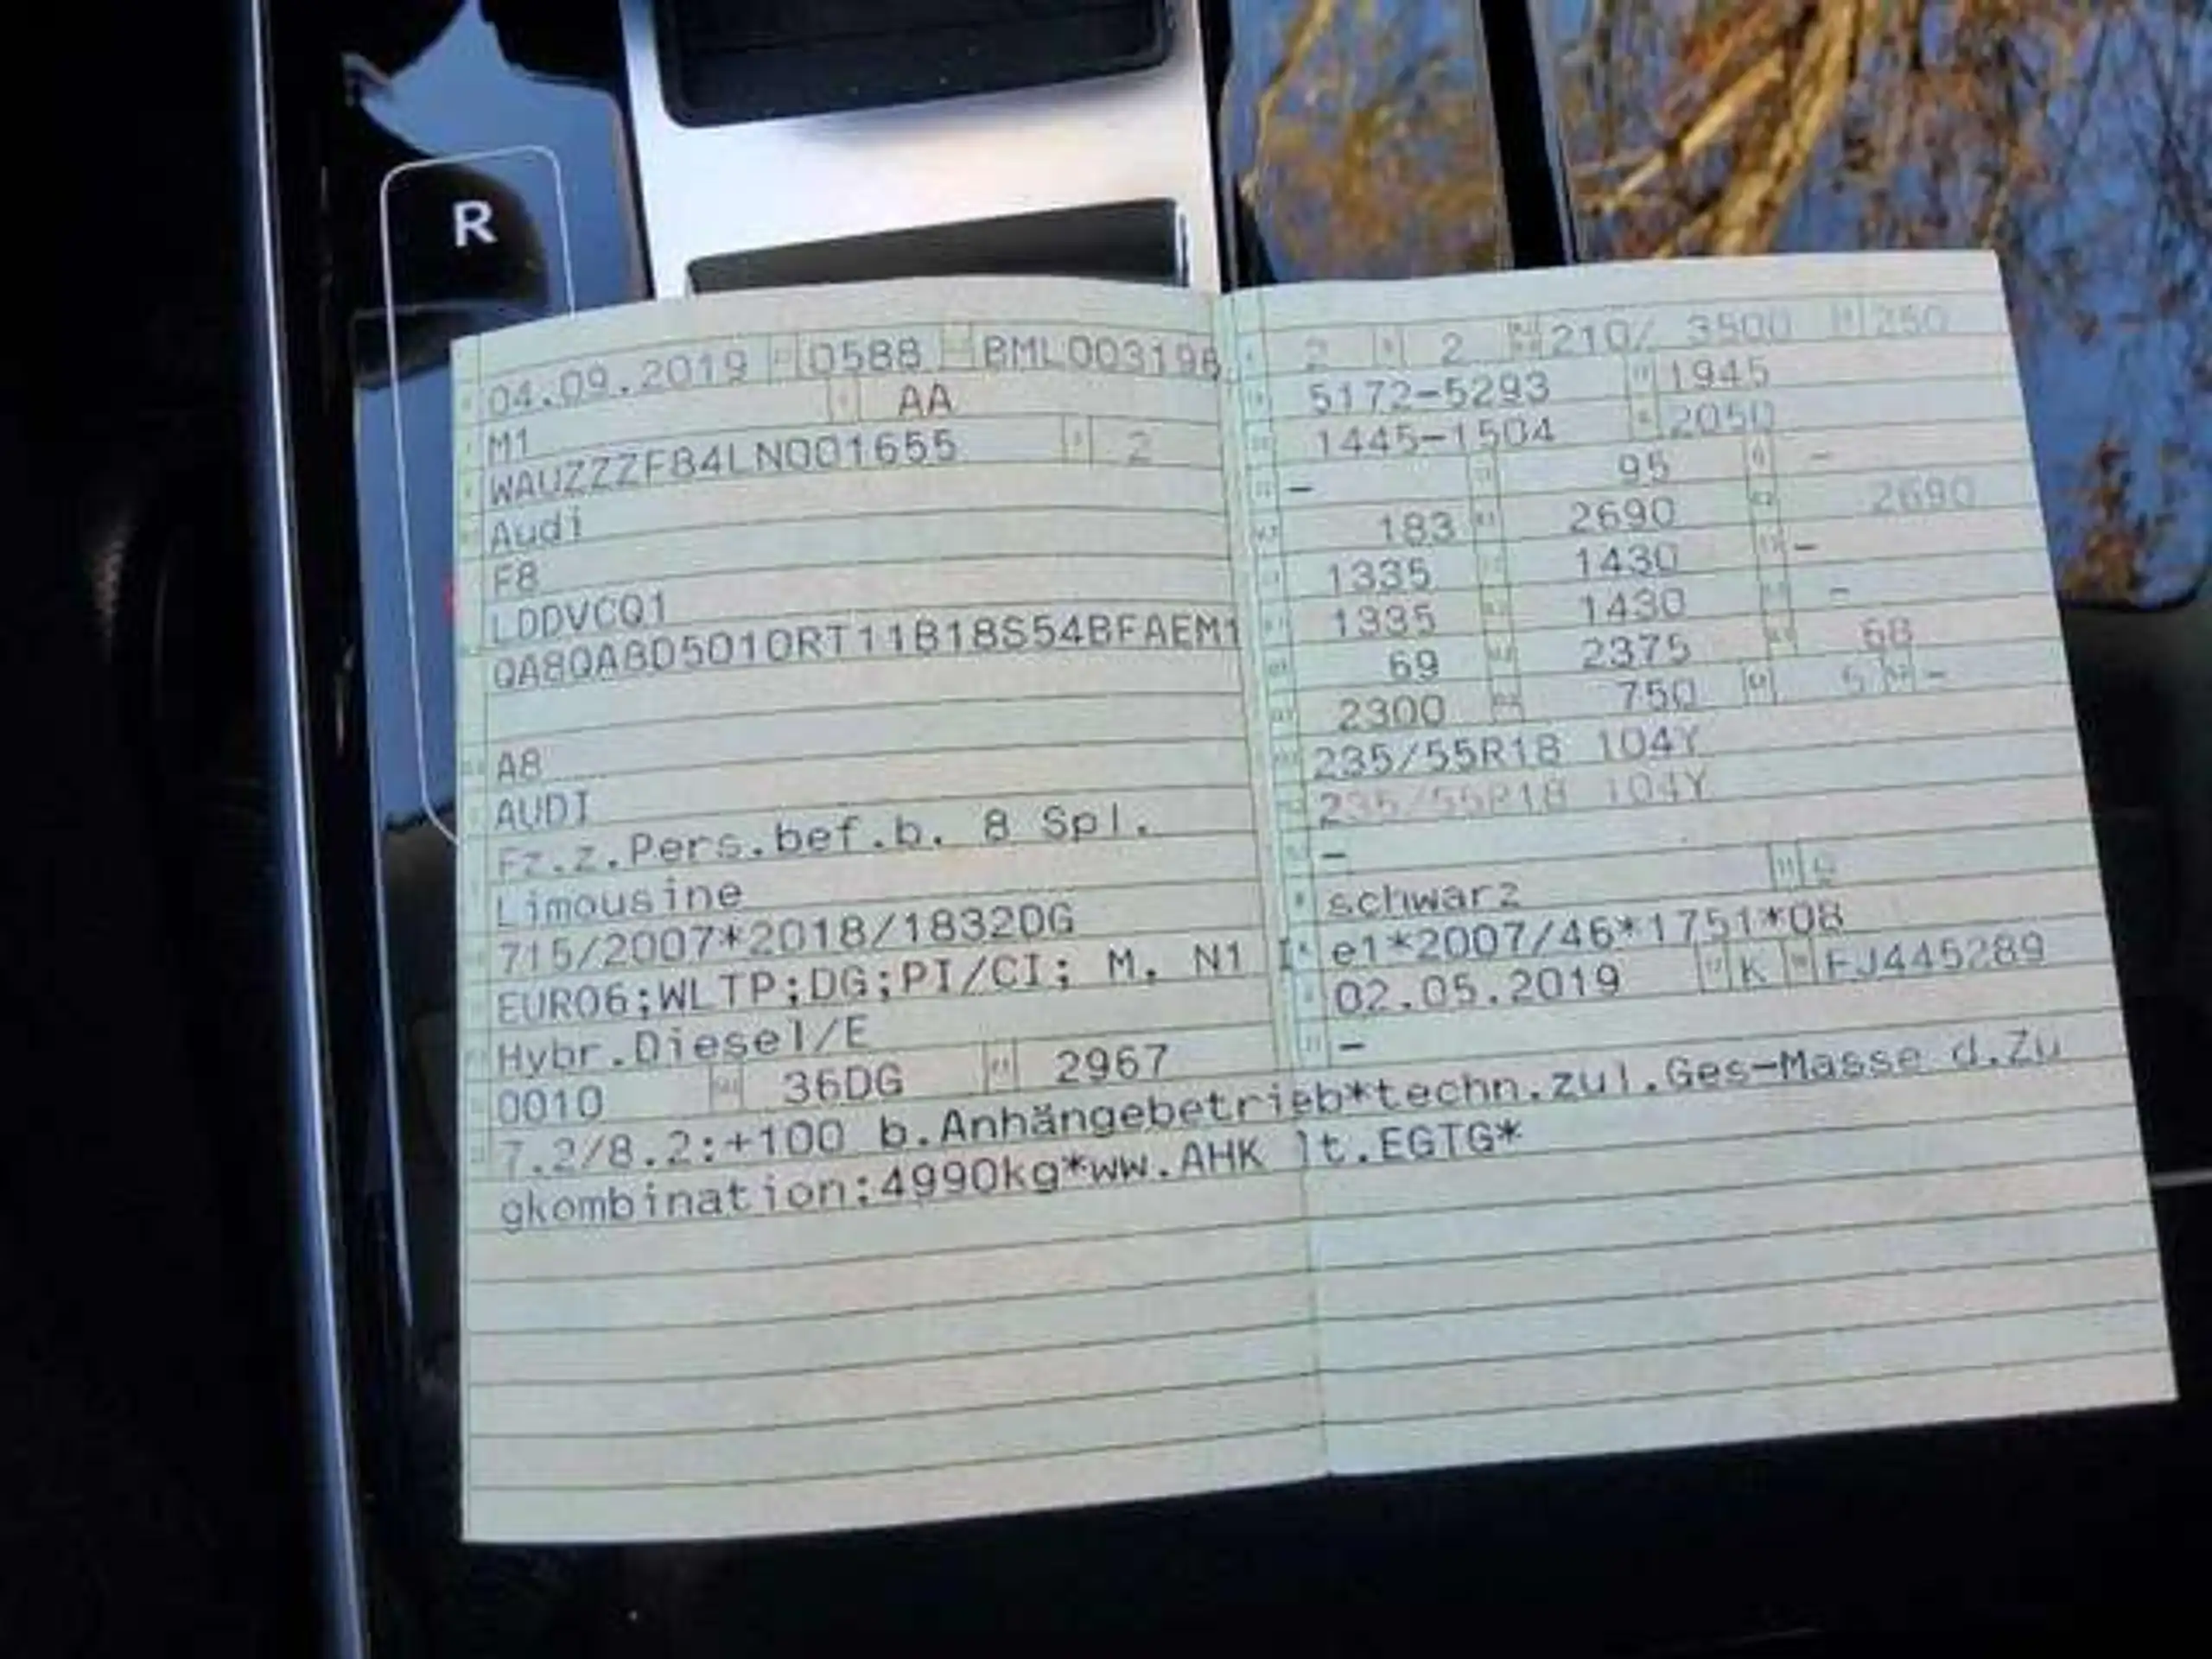 R
04.09.2019 0588 BML003196
AA
M1
WAUZZZF84LN001655 2
Audi
F8
LDDVCQ1
QA8QA8D5010RT11B18S54BFAEM1
A8
AUDI
Fz.z.Pers.bef.b. 8 Spl.
Limousine
715/2007*2018/1832DG
EURO6;WLTP;DG;PI/CI; M, N1 I
Hybr.Diesel/E
0010 36DG 2967
7.2/8.2:+100 b.Anhängebetrieb*techn.zul.Ges-Masse d.Zu
gkombination:4990kg*ww.AHK lt.EGTG*
2 2 210/ 3500 250
5172-5293 1945
1445-1504 2050
- 95 -
183 2690 2690
1335 1430 -
1335 1430 -
69 2375 68
2300 750 5 -
235/55R18 104Y
235/55R18 104Y
-
schwarz 9
e1*2007/46*1751*08
02.05.2019 K FJ445289
-